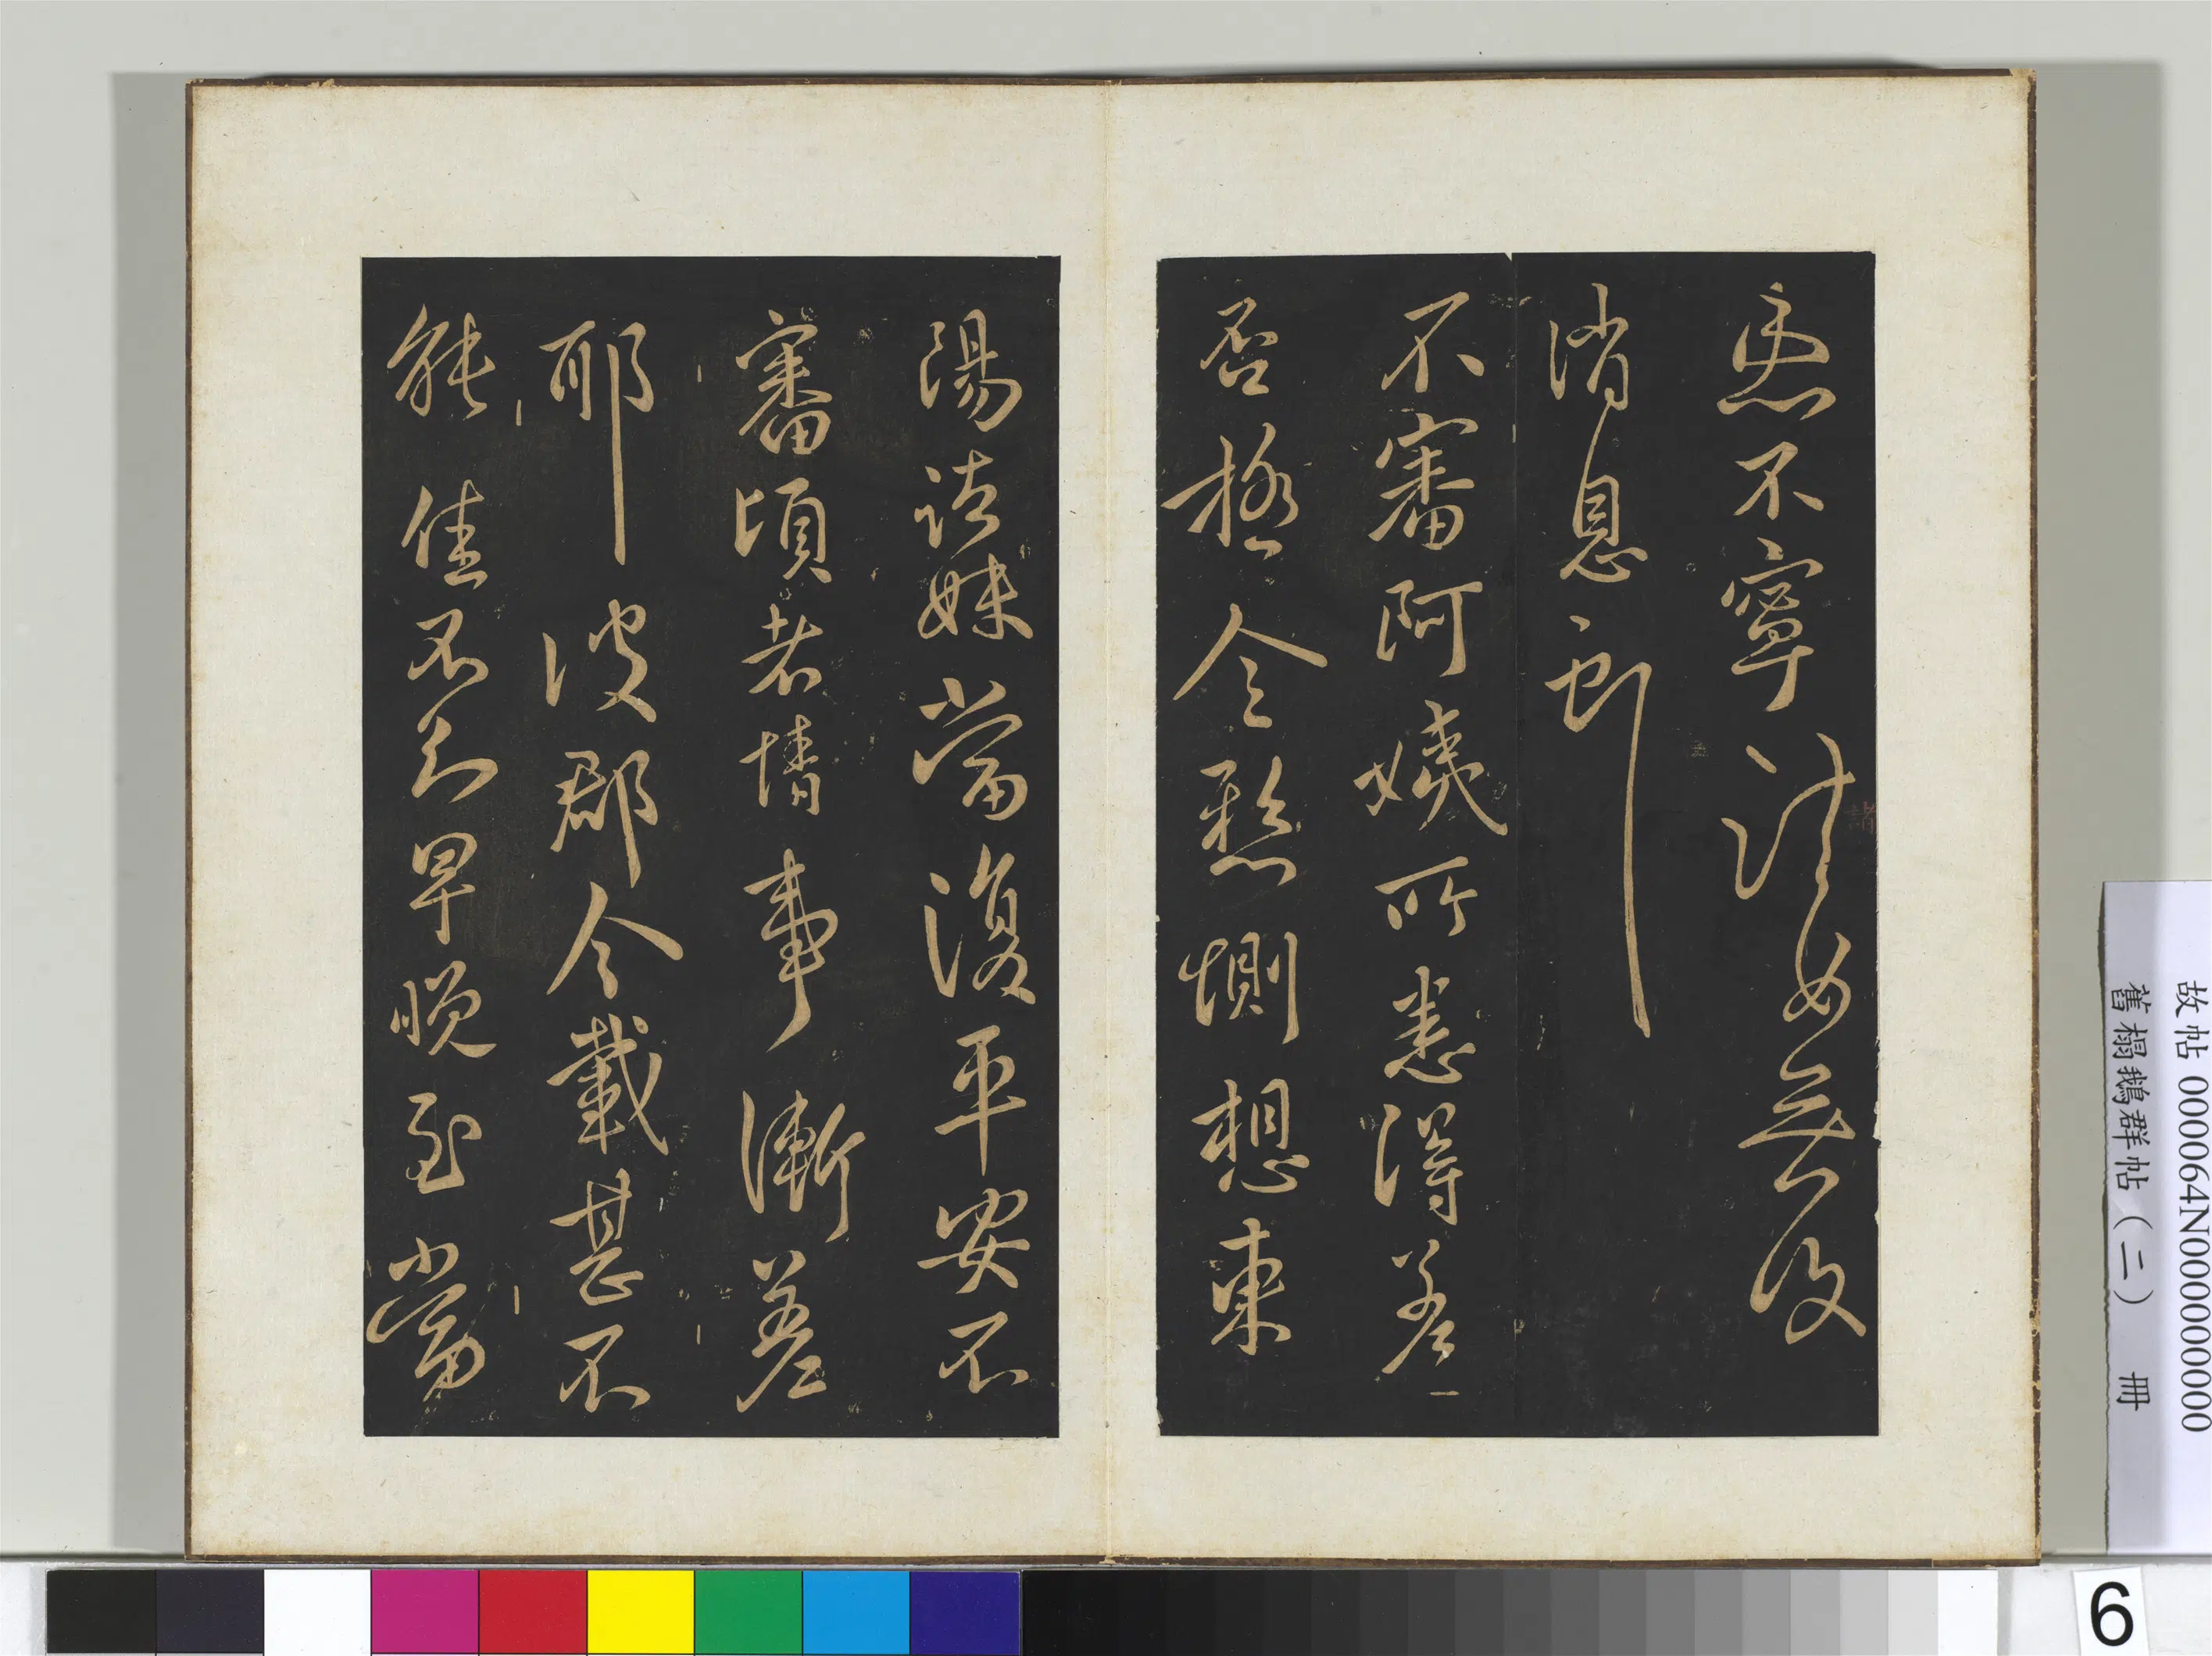 慮不寧無復
消息
不審阿姨所患得差
否極令懸惻想東
陽諸妹當復平安不
審頃者情事漸差
耶彼郡今載甚不
能佳不知早晚至當
故帖 000064N000000000
舊榻鵝群帖（二） 冊
6